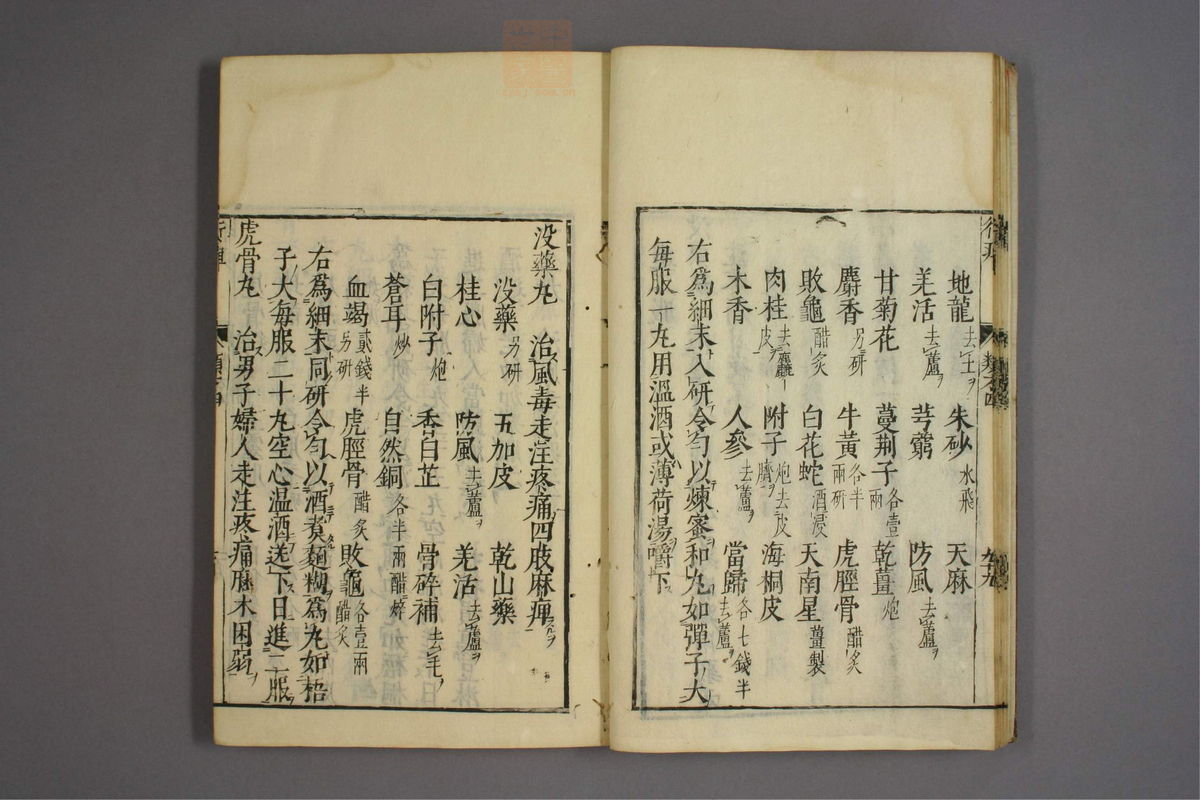 地龍去土 朱砂水飛 天麻
羌活去蘆 芎藭 防風去蘆
甘菊花 蔓荆子各壹兩 乾薑炮
麝香另研 牛黃各半兩研 虎脛骨醋炙
敗龜醋炙 白花蛇酒浸 天南星薑製
肉桂去麤皮 附子炮去皮臍 海桐皮
木香 人參去蘆 當歸各七錢半去蘆
右爲細末入研令勻以煉蜜和丸如彈子大
每服一丸用溫酒或薄荷湯嚼下
没藥丸 治風毒走注疼痛四肢麻痺
没藥另研 五加皮 乾山藥
桂心 防風去蘆 羌活去蘆
白附子炮 香白芷 骨碎補去毛
蒼耳炒 自然銅各半兩醋焠
血竭貳錢半另研 虎脛骨醋炙 敗龜各壹兩醋炙
右爲細末同研令勻以酒煑麵糊爲丸如梧
子大每服二十丸空心温酒送下日進二服
虎骨丸 治男子婦人走注疼痛麻木困弱